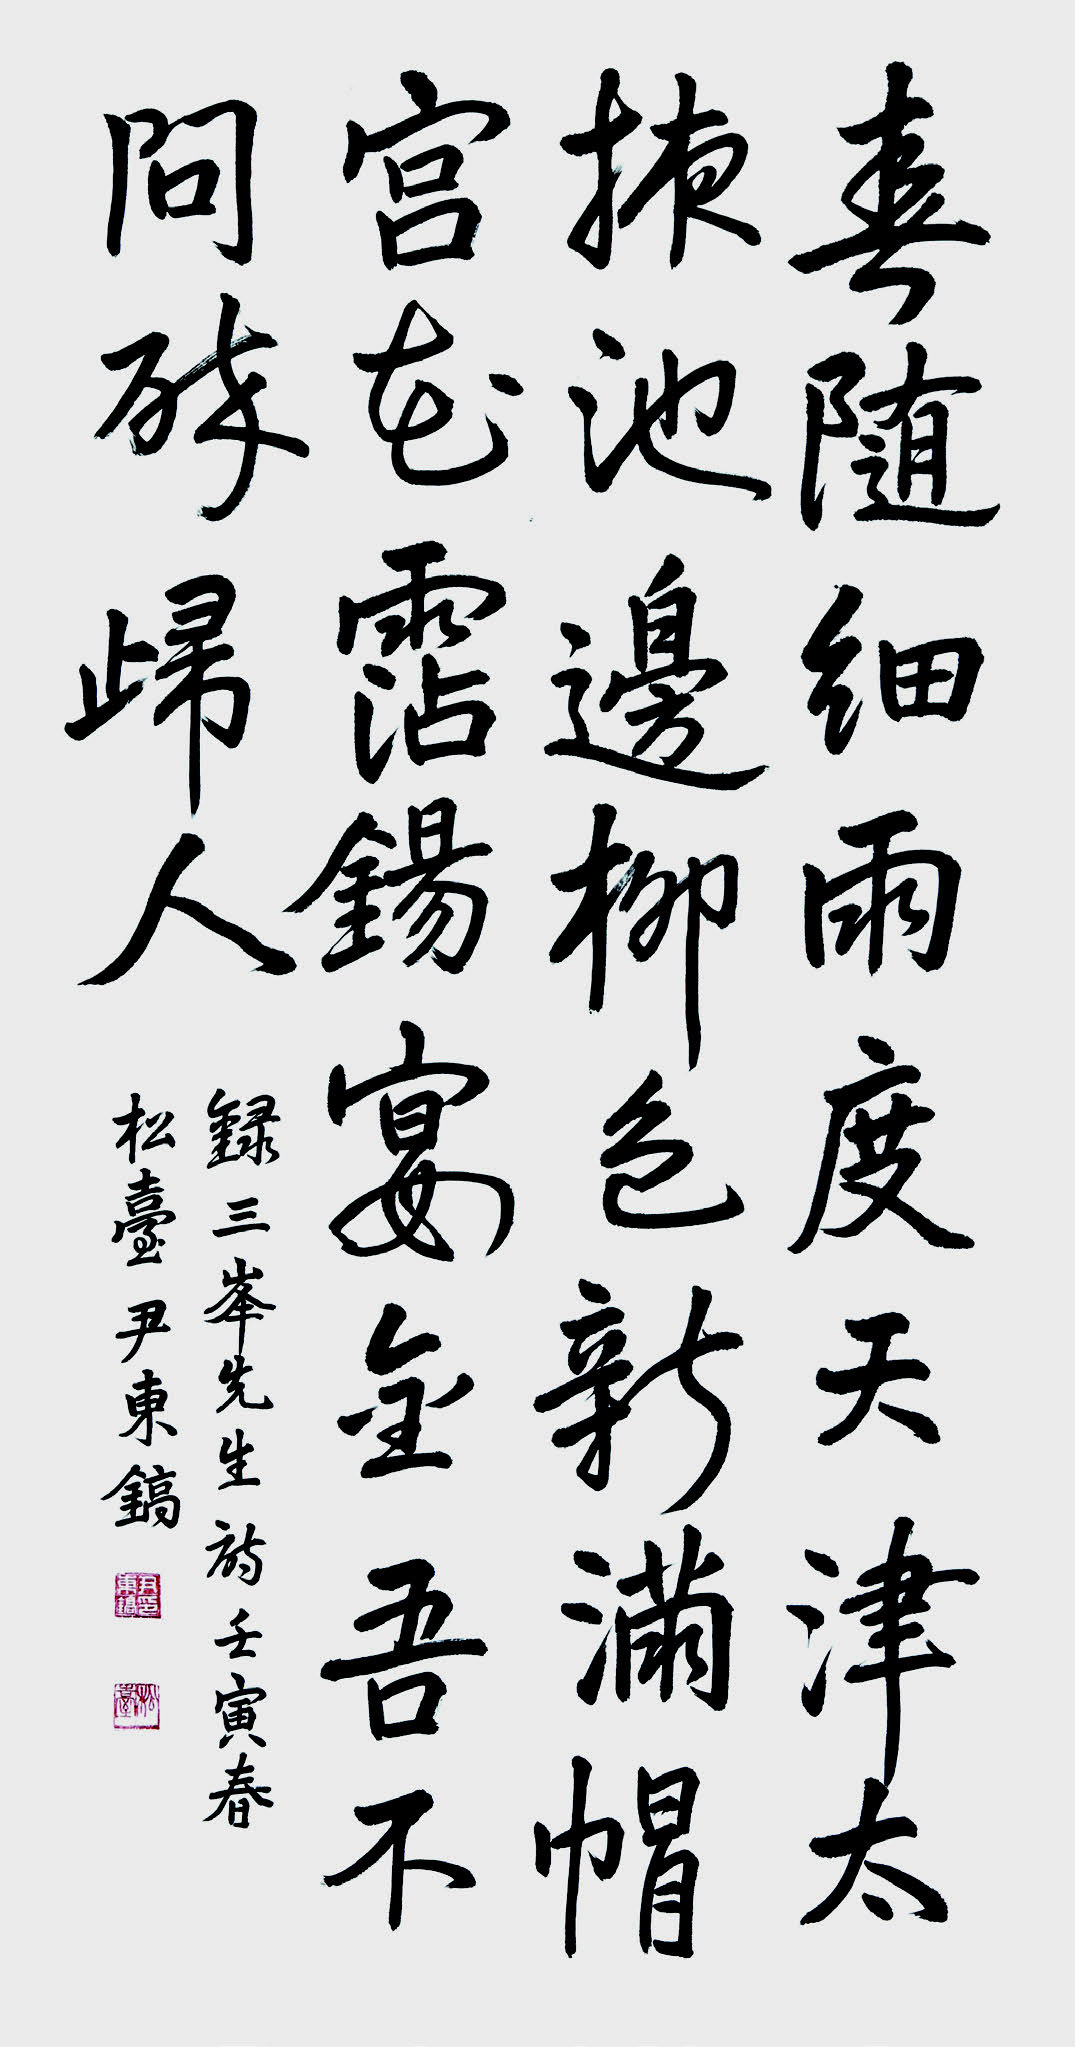 春随細雨度天津太
掖池邊柳色新滿帽
宮花霑錫宴金吾不
問醉歸人
録三峯先生詩壬寅春
松臺尹東鎬
尹印東鎬
松臺